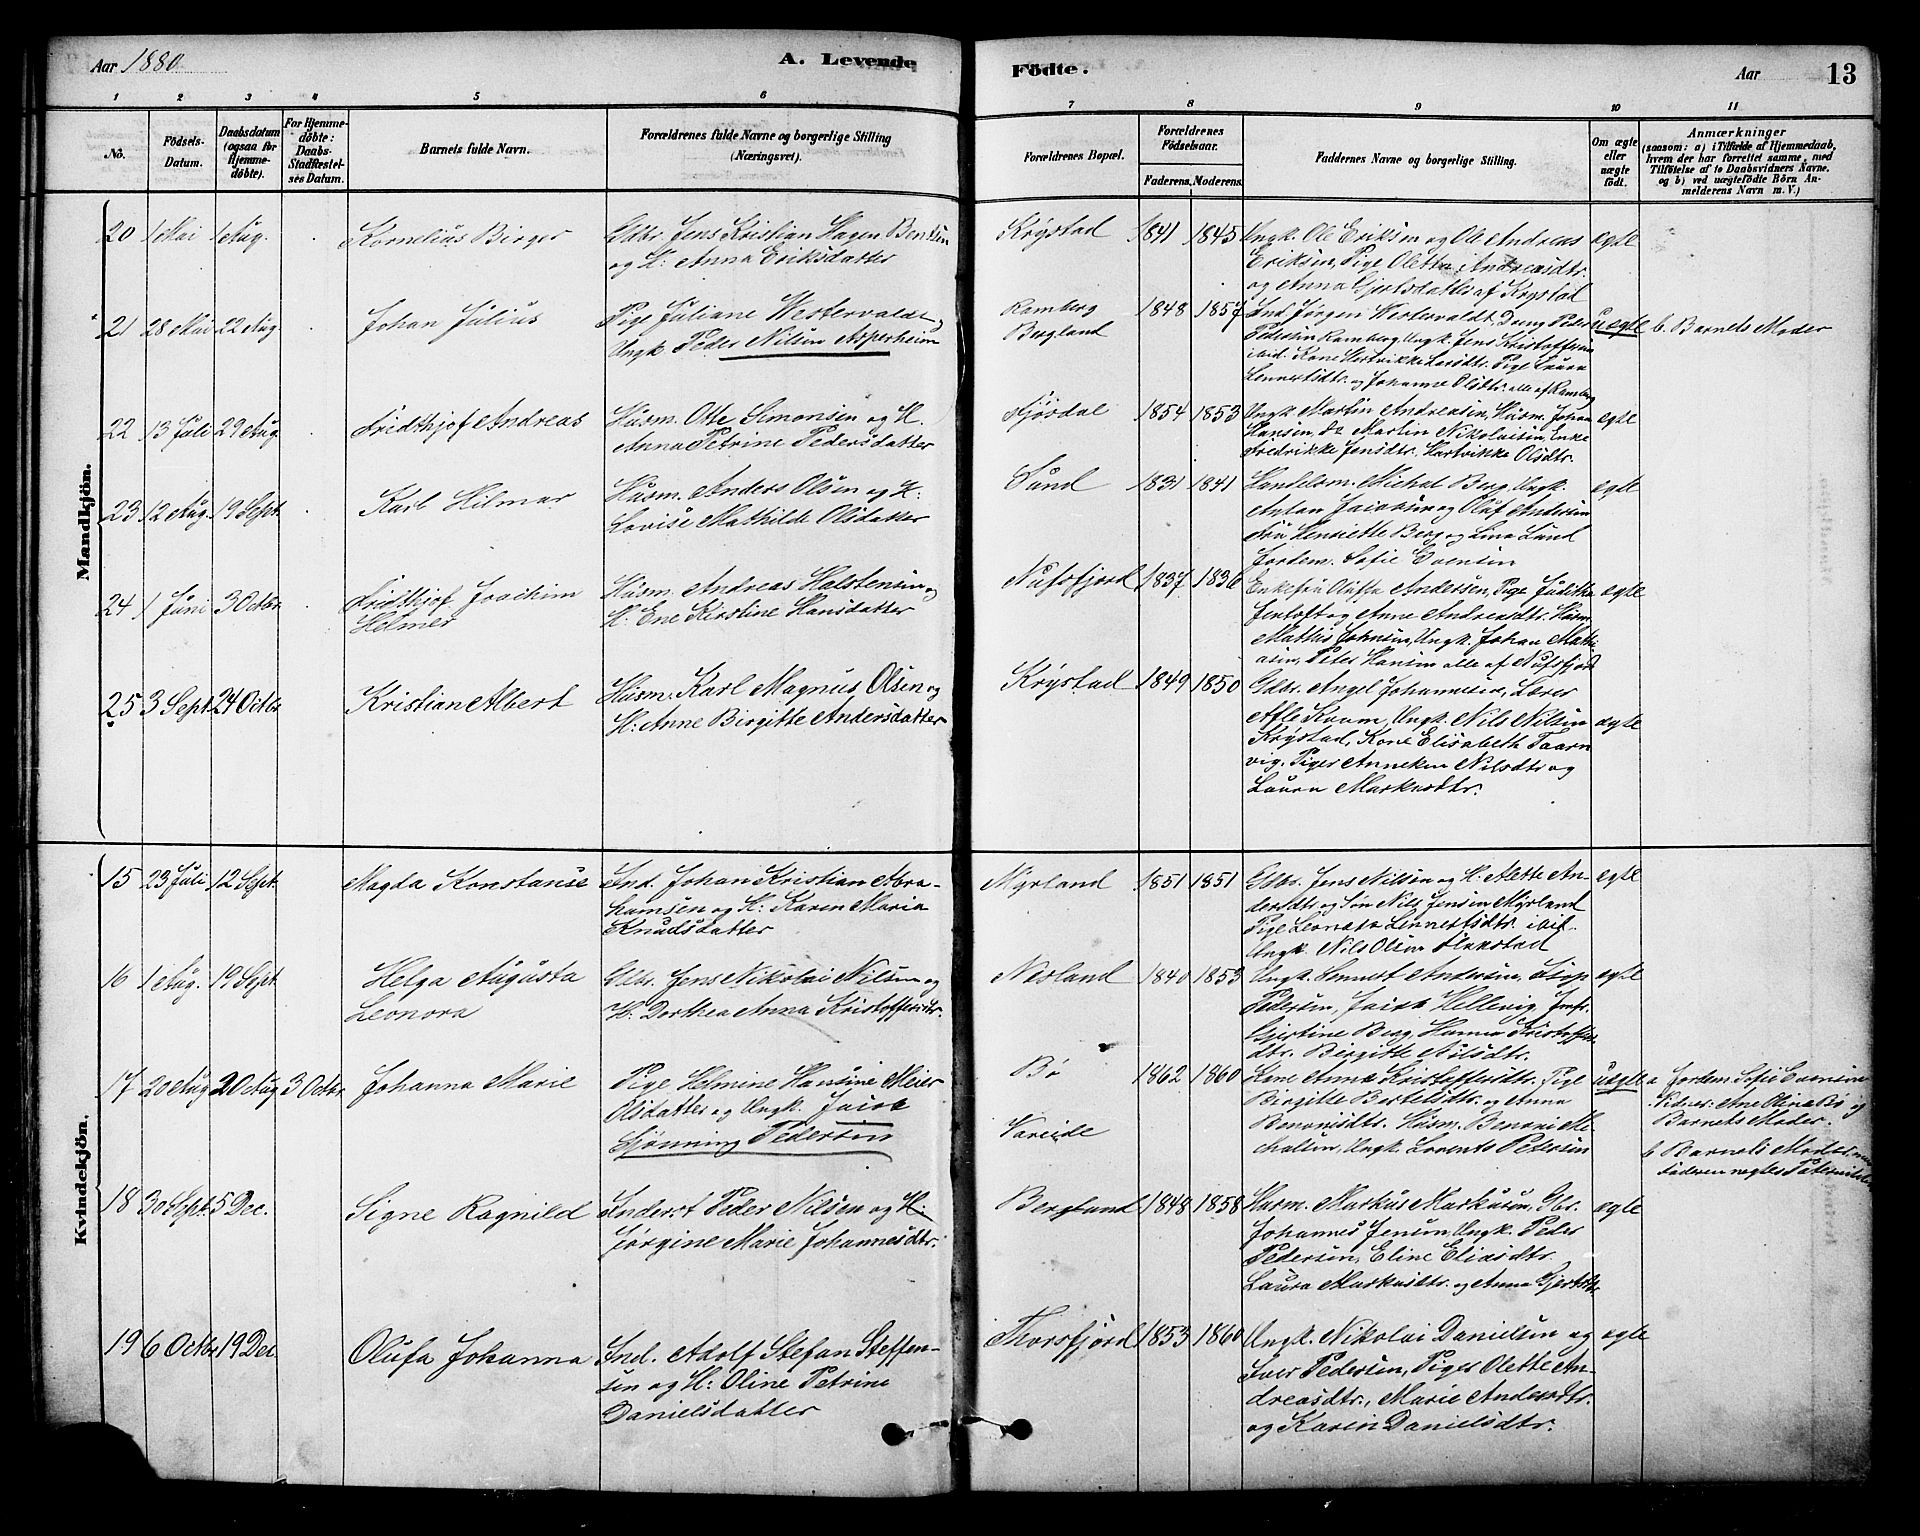 Aar 1880
A. Levende
Födte.
Aar
13
1 2 3 4 5 6 7 8 9 10 11
No.
Födsels-
Datum.
Daabsdatum
(ogsaa for
Hjemme-
döbte).
For Hjemme-
döbte:
Daabs-
Stadfæstel-
ses Datum.
Barnets fulde Navn.
Forældrenes fulde Navne og borgerlige Stilling
(Næringsvei).
Forældrenes Bopæl.
Forældrenes
Födselsaar.
Faderens. Moderens.
Faddernes Navne og borgerlige Stilling.
Om ægte
eller
uægte
födt.
Anmærkninger
(saasom: a) i Tilfælde af Hjemmedaab,
hvem der har forrettet samme, med
Tilföielse af to Daabsvidners Navne,
og b) ved uægtefödte Börn An-
melderens Navn m. V.)
Mandkjön.
20 1 Mai 1 Aug. Kornelius Birger
Gdbr. Jens Kristian Hagen Bentsen
og H: Anna Eriksdatter
Krystad 1841 1845
Ungk. Ole Eriksen og Ole Andreas
Eriksen, Pige Oletta Andreasdtr.
og Anna Gjertsdatter af Krystad
ægte
21 28 Mai 22 Aug. Johan Julius
Pige Juliane Westervaldt og
Ungk Peder Nilsen Asperheim
Ramberg
Bergland
1848 1857
Ind. Jørgen Westervaldt, Dreng Peder
Pedersen Ramberg, Ungk. Jens Kristoffersen
ibid. Kone Hartvikke Larsdtr. Pige Laura
Lennertsdtr. og Johanne Olsdtr. alle af Ramberg
uægte b. Barnets Moder
22 13 Juli 29 Aug. Fredthjof Andreas
Husm. Otte Simonsen og H.
Anna Petrine Pedersdatter
Fjösdal 1854 1853
Ungk Martin Andreasen, Husm. Johan
Hansen, do Martin Nikolaisen, Enke
Fredrikke Jensdtr. Hartvikke Olsdtr.
ægte
23 12 Aug. 19 Sept. Karl Hilmar
Husm. Anders Olsen og H:
Lovise Mathilde Olsdatter
Sund 1831 1841
Handelsm. Michal Berg, Ungk.
Anton Jacobsen og Oluf Andersen
Fru Henriette Berg og Lina Lund
Jordem. Sofie Evensen
ægte
24 1 Juni 3 Octbr. Fridthjof Joachim
Helmer
Husm. Andreas Halstensen og
H. Ene Kirstine Hansdatter
Nufsfjord 1837 1836
Enkefru Olufta Andersen, Pige Juditha
Jentoft og Anne Andreasdtr. Husm.
Mathis Johnsen, Ungk. Johan Mathi
asen, Peter Hansen alle af Nufsfjord
ægte
25 3 Sept. 24 Octbr. Kristian Albert
Husm. Karl Magnus Olsen og
H: Anne Birgitte Andersdatter
Krystad 1849 1850
Gdbr. Angel Johannesen, Lærer
Atle Kaam, Ungk. Nils Nilsen
Krystad, Kone Elisabeth Taarn
vig, Piger Anneken Nilsdtr og
Laura Markusdtr.
ægte
Kvindekjön.
15 23 Juli 12 Sept. Magda Konstanse
Ind. Johan Kristian Abra-
hamsen og H: Karen Maria
Knudsdatter
Myrland 1851 1851
Gdbr. Jens Nilsen og H: Alette An-
dersdtr og Søn Nils Jensen Myrland
Pige Leonora Lennertsdtr. ibid.
Ungk. Nils Olsen Flakstad
ægte
16 1 Aug. 19 Sept. Helga Augusta
Leonora
Gdbr. Jens Nikolai Nilsen og
H: Dorthea Anna Kristoffersdtr.
Næsland 1840 1853
Ungk. Lennert Andersen,
Pedersen, Jacob Hellevig, Jmfr.
Gjertine Berg, Hanna Kristoffers
dtr. Birgitte Nilsdtr.
ægte
17 20 Aug 20 Aug 3 Octbr. Johanna Marie
Pige Helmine Hansine Meier
Olsdatter og Ungk. Jacob
Gjønning Pedersen
Bø
Vareide
1862 1860
Kone Anna Kristoffersdtr. Pige
Birgitte Bertelsdtr. og Anna
Benonisdtr. Husm. Benoni Mi-
chalsen, Ungk. Lorents Petersen
uægte
a Jordem. Sofie Evensen
Vidner: Ane Olina Bø og
Barnets Moder.
b Barnets Moder,
Faderen negtes Paternitet
18 30 Sept. 5 Dec. Signe Ragnild
Inderst Peder Nilsen og H:
Jørgine Marie Johannesdtr.
Bergland 1848 1858
Husm. Markus Markusen, Gbr.
Johannes Jensen, Ungk. Peder
Pedersen, Eline Eliasdtr.
Laura Markusdtr. og Anna Gjertsdtr.
ægte
19 6 Octbr. 19 Dec. Olufa Johanna
Ind. Adolf Stefan Steffen-
sen og H: Oline Petrine
Danielsdatter
Thorsfjord 1853 1860
Ungk. Nikolai Danielsen og
Iver Pedersen, Piger Olette An-
dreasdtr., Marie Andersdtr.
og Karen Danielsdtr.
ægte